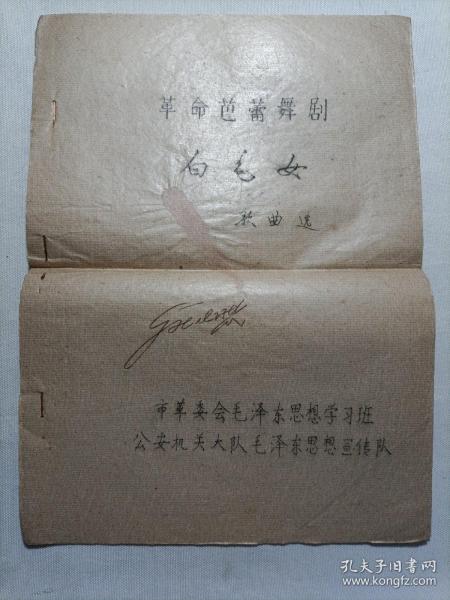 革命芭蕾舞剧
白毛女
歌曲选
市革委会毛泽东思想学习班
公安机关大队毛泽东思想宣传队
孔夫子旧书网
www.kongfz.com